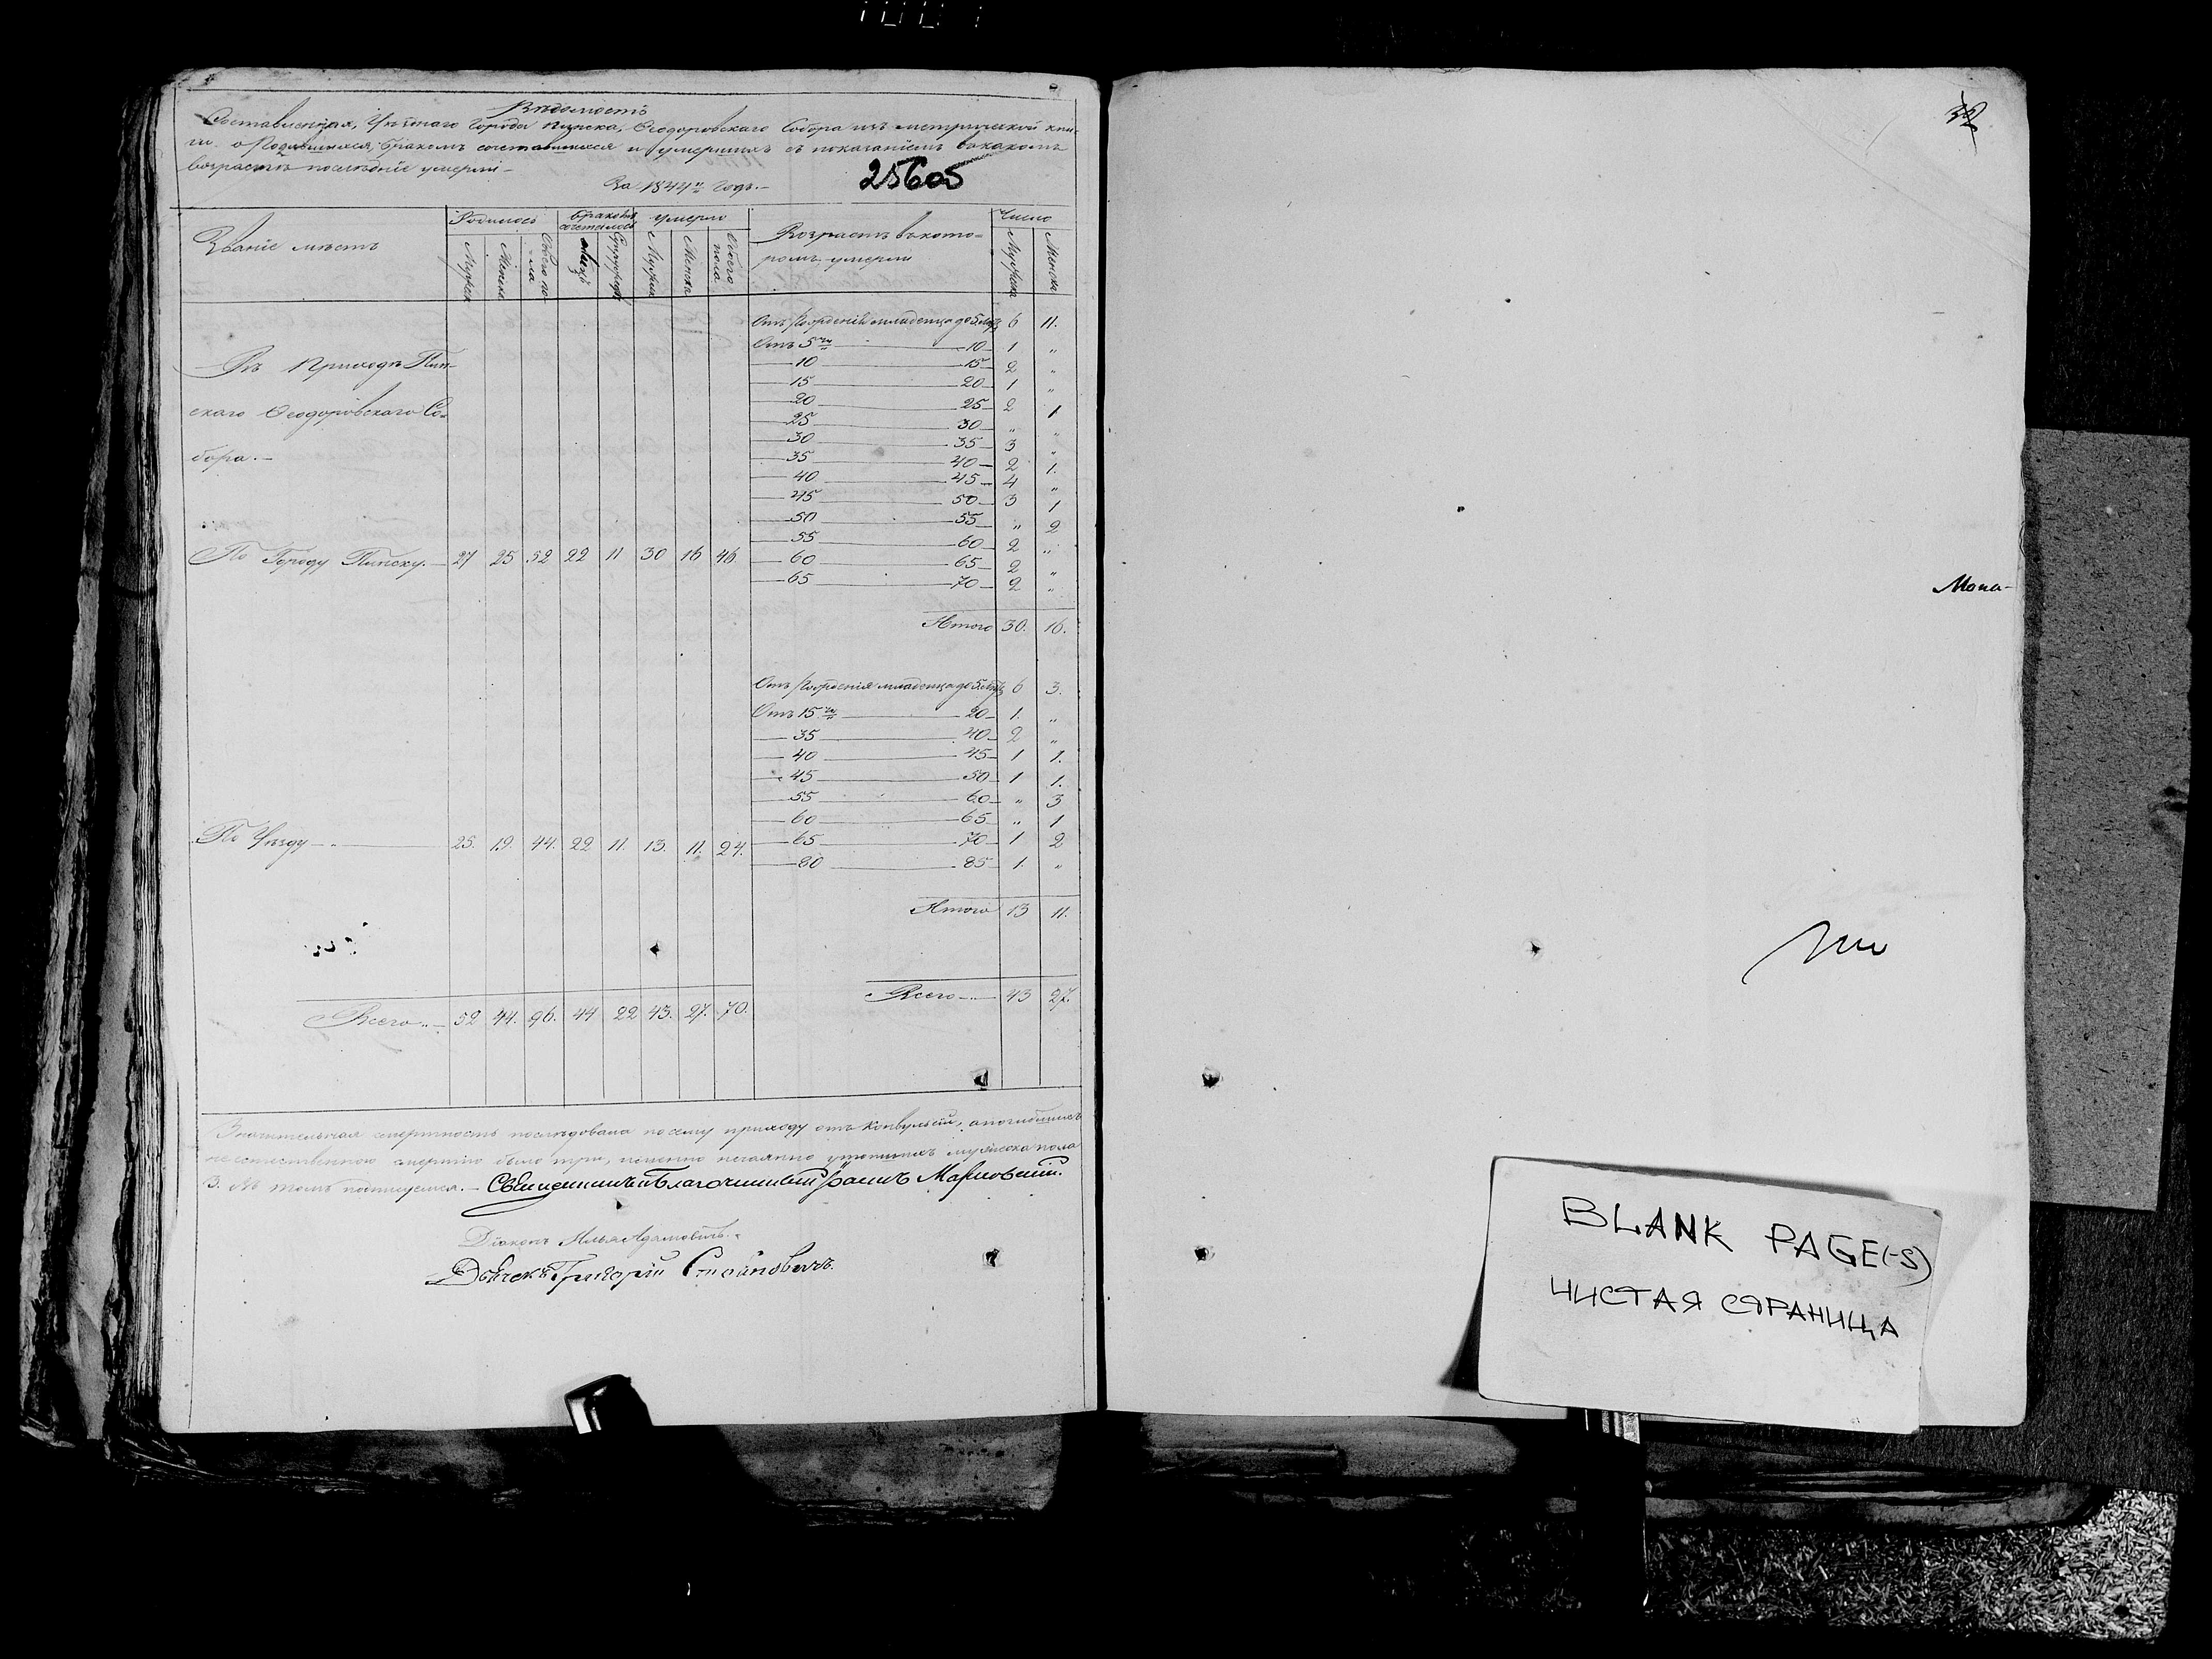 Вѣдомость
Составленная, Уѣзднаго Города Пинска, Ѳеодоровскаго Собора изъ метрической кни-
ги о Родившихся, бракомъ сочетавшихся и умершихъ съ показаніемъ въ какомъ
возрастѣ послѣдніе умерли
За 1844й Годъ.
25605
Званіе мѣстъ
Родилось
бракомъ сочеталось
умерло
Возрастъ въ кото-
ромъ умерли
Число
Мужска
Женска
Обоего по-
ла
Лицъ
Супружествъ
Мужска
Женска
Обоего
пола
Мужска
Женска
Отъ Рожденія младенца до 5 лѣтъ 6 11.
Отъ 5ти 10 1 „
10 15 2 „
15 20 1 „
20 25 2 1
25 30 „ „
30 35 3 „
35 40 2 1.
40 45 4 „
45 50 3 1
50 55 „ 2
55 60 2 „
60 65 2 „
65 70 2 „
Въ Приходѣ Пин-
скаго Ѳеодоровскаго Со-
бора.
По Городу Пинску. 27 25 52 22 11 30 16 46
Итого 30. 16.
Отъ Рожденія младенца до 5 лѣтъ 6 3.
Отъ 15ти 20 1. „
35 40 2 „
40 45 1 1.
45 50 1 1.
55 60 „ 3
60 65 „ 1
65 70 1 2
80 85 1. „
По Уѣзду 25. 19. 44. 22 11. 13. 11. 24.
Итого 13 11.
Всего 43 27.
Всего 52 44. 96. 44 22 43. 27. 70.
Значительная смертность послѣдовала по сему приходу отъ Конвульсіи, а погибшихъ
неестественною смертію было три, именно нечаянно утопшихъ мужеска пола
3. Въ томъ подписуемся. Священникъ и Благочинный Мариовскій.
Діаконъ Илья Адамовичъ.
Дьячекъ Григорій Стояновичъ.
32
Мона-
BLANK PAGE(-S)
ЧИСТАЯ СТРАНИЦА